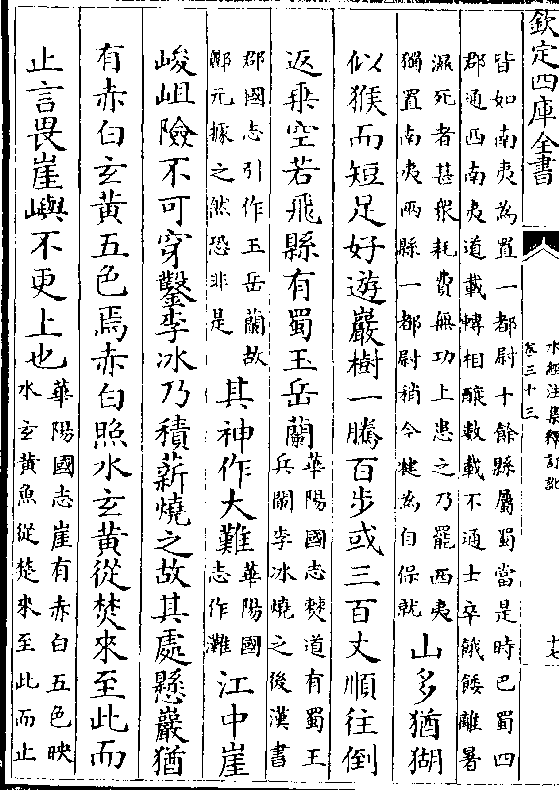 欽定四庫全書
水經注集釋訂訛
卷三十三
皆如南夷為置一都尉十餘縣屬蜀當是時巴蜀四
郡通西南夷道載轉相饟數載不通士卒餓餒離暑
濕死者甚衆耗費無功上患之乃罷西夷
獨置南夷兩縣一都尉稍令犍為自保就
山多猶猢
似猴而短足好遊巖樹一騰百步或三百丈順往倒
返乗空若飛縣有蜀王岳蘭
華陽國志僰道有蜀王
兵闌李冰燒之後漢書
郡國志引作王岳蘭故
酈元據之然恐非是
其神作大難
華陽國
志作灘
江中崖
峻岨險不可穿鑿李冰乃積薪燒之故其處懸巖猶
有赤白玄黃五色焉赤白照水玄黃從焚來至此而
止言畏崖嶼不更上也
華陽國志崖有赤白五色映
水玄黃魚從楚來至此而止